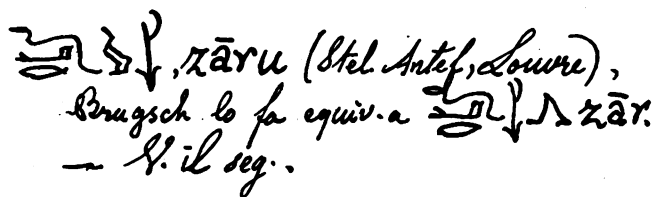 , zāru (Stel. Antef, Louvre),
Brugsch lo fa equiv. a zār.
— V. il seg..